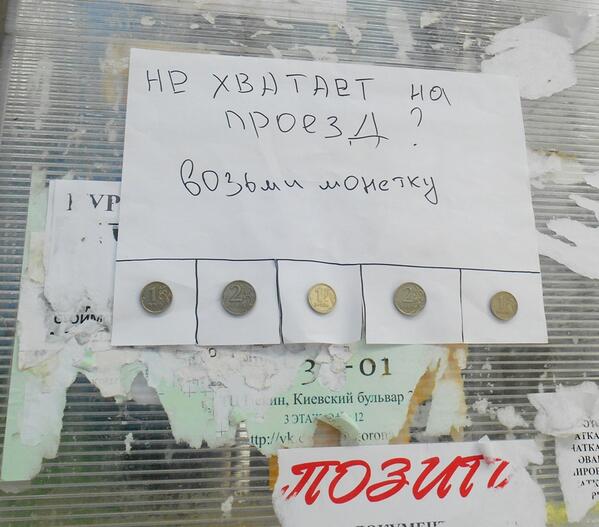 НЕ ХВАТАЕТ на
ПРОЕЗД?
возьми монетку
1 2 1 2 1
-01
Киевский бульвар
ЭТАЖ
12
http://vk.
ПОЗИТ